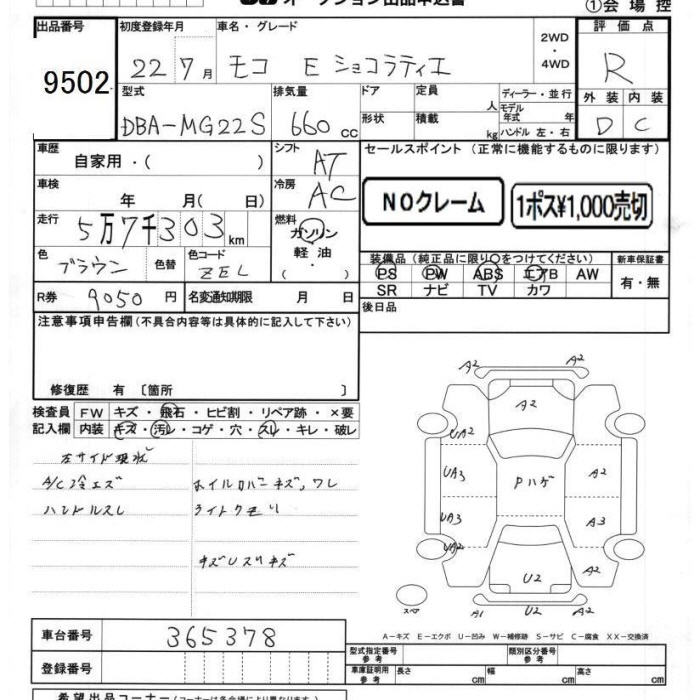 オークション出品申込書
①会場控
出品番号 初度登録年月 車名・グレード 2WD・4WD 評価点
9502 22 7月 モコ E ショコラティエ R
型式 排気量 ドア 定員 人 ディーラー・並行 外装 内装
DBA-MG22S 660cc 形状 積載 kg モデル年式 年 ハンドル 左・右 D C
車歴 自家用・( ) シフト AT セールスポイント(正常に機能するものに限ります)
車検 年 月( 日) 冷房 AC NOクレーム 1ポス¥1,000売切
走行 5万7千303km 燃料 ガソリン 軽油 ( ・ )
色 ブラウン 色替 色コード ZEL
装備品(純正品に限り○をつけてください) 新車保証書
PS PW ABS エアB AW 有・無
SR ナビ TV カワ
R券 9050円 名変通知期限 月 日 後日品
注意事項申告欄(不具合内容等は具体的に記入して下さい)
修復歴 有 〔箇所 〕
検査員 FW キズ・飛石・ヒビ割・リペア跡・×要
記入欄 内装 キズ・汚レ・コゲ・穴・スレ・キレ・破レ
左サイド現状
A/C冷エズ ホイルカバーキズ、ワレ
ハンドルスレ ライトクモリ
キズUスリキズ
A2 A2
A2
UA2
UA3 Pハゲ A2
UA3 A3
UA2
U2 A2
スペア A1 U2 A2
A-キズ E-エクボ U-凹み W-補修跡 S-サビ C-腐食 XX-交換済
車台番号 365378
型式指定番号 参考 類別区分番号 参考
登録番号
車庫証明用 参考 長さ cm 幅 cm 高さ cm
希望出品コーナー